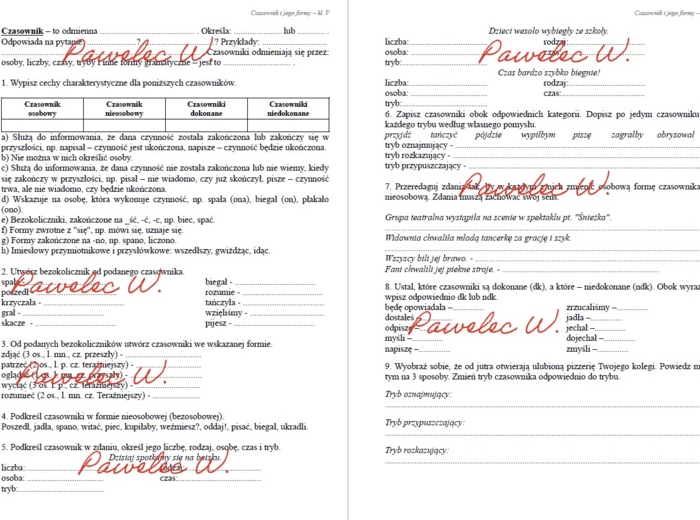 Czasownik i jego formy – kl. V
Czasownik – to odmienna ............ . Określa: ............ lub ............ .
Odpowiada na pytanie ............? ............? Przykłady: ............
Czasowniki odmieniają się przez:
osoby, liczby, czasy, tryby i inne formy gramatyczne – jest to ............
Pawelec W.
1. Wypisz cechy charakterystyczne dla poniższych czasowników.
Czasownik osobowy Czasownik nieosobowy Czasowniki dokonane Czasowniki niedokonane
a) Służą do informowania, że dana czynność została zakończona lub zakończy się w
przyszłości, np. napisał – czynność jest ukończona, napisze – czynność będzie ukończona.
b) Nie można w nich określić osoby.
c) Służą do informowania, że dana czynność nie została zakończona lub nie wiemy, kiedy
się zakończy w przyszłości, np. pisał – nie wiadomo, czy już skończył, pisze – czynność
trwa, ale nie wiadomo, czy będzie ukończona.
d) Wskazuje na osobę, która wykonuje czynność, np. spała (ona), biegał (on), płakało
(ono).
e) Bezokoliczniki, zakończone na _ść, -ć, -c, np. biec, spać.
f) Formy zwrotne z "się", np. mówi się, uznaje się.
g) Formy zakończone na -no, np. spano, liczono.
h) Imiesłowy przymiotnikowe i przysłówkowe: wszedłszy, gwiżdżąc, idąc.
2. Utwórz bezokolicznik od podanego czasownika.
spała biegał -
poszedł rozumie -
krzyczała - tańczyła -
grał - wzięliśmy -
skacze - pijesz -
Pawelec W.
3. Od podanych bezokoliczników utwórz czasowniki we wskazanej formie.
zdjąć (3 os., l. mn., cz. przeszły) -
patrzeć (2 os., l. p. cz. teraźniejszy) -
Pawelec W.
wyciąć (3 os. l. p., cz. teraźniejszy) -
rozumieć (2 os., l. mn. cz. Teraźniejszy) -
4. Podkreśl czasowniki w formie nieosobowej (bezosobowej).
Poszedł, jadła, spano, witać, piec, kupiłaby, weźmiesz?, oddaj!, pisać, biegał, ukradli.
5. Podkreśl czasownik w zdaniu, określ jego liczbę, rodzaj, osobę, czas i tryb.
Dzisiaj spotkamy się na boisku.
liczba: rodzaj:
osoba: czas:
tryb:
Pawelec W.
Czasownik i jego formy –
Dzieci wesoło wybiegły ze szkoły.
liczba: rodzaj:
osoba: czas:
tryb:
Pawelec W.
Czas bardzo szybko biegnie!
liczba: rodzaj:
osoba: czas:
tryb:
6. Zapisz czasowniki obok odpowiednich kategorii. Dopisz po jednym czasowniku
każdego trybu według własnego pomysłu.
przyjdź tańczyć pójdzie wypiłbym piszę zagrałby obrysował
tryb oznajmujący -
tryb rozkazujący -
tryb przypuszczający -
7. Przeredaguj zdania tak, by w każdym z nich zmienić osobową formę czasownika
nieosobową. Zdania muszą zachować swój sens.
Pawelec W.
Grupa teatralna wystąpiła na scenie w spektaklu pt. "Śnieżka".
Widownia chwaliła młodą tancerkę za grację i szyk.
Wszyscy bili jej brawo. -
Fani chwalili jej piękne stroje. -
8. Ustal, które czasowniki są dokonane (dk), a które – niedokonane (ndk). Obok wyraz
wpisz odpowiednio dk lub ndk.
będę opowiadała – zrzucaliśmy –
dostałeś jadła –
odpisz jechał –
myśli – dojechał –
napiszę – zmyśli –
Pawelec W.
9. Wyobraź sobie, że od jutra otwierają ulubioną pizzerię Twojego kolegi. Powiedz m
tym na 3 sposoby. Zmień tryb czasownika odpowiednio do trybu.
Tryb oznajmujący:
Tryb przypuszczający:
Tryb rozkazujący: